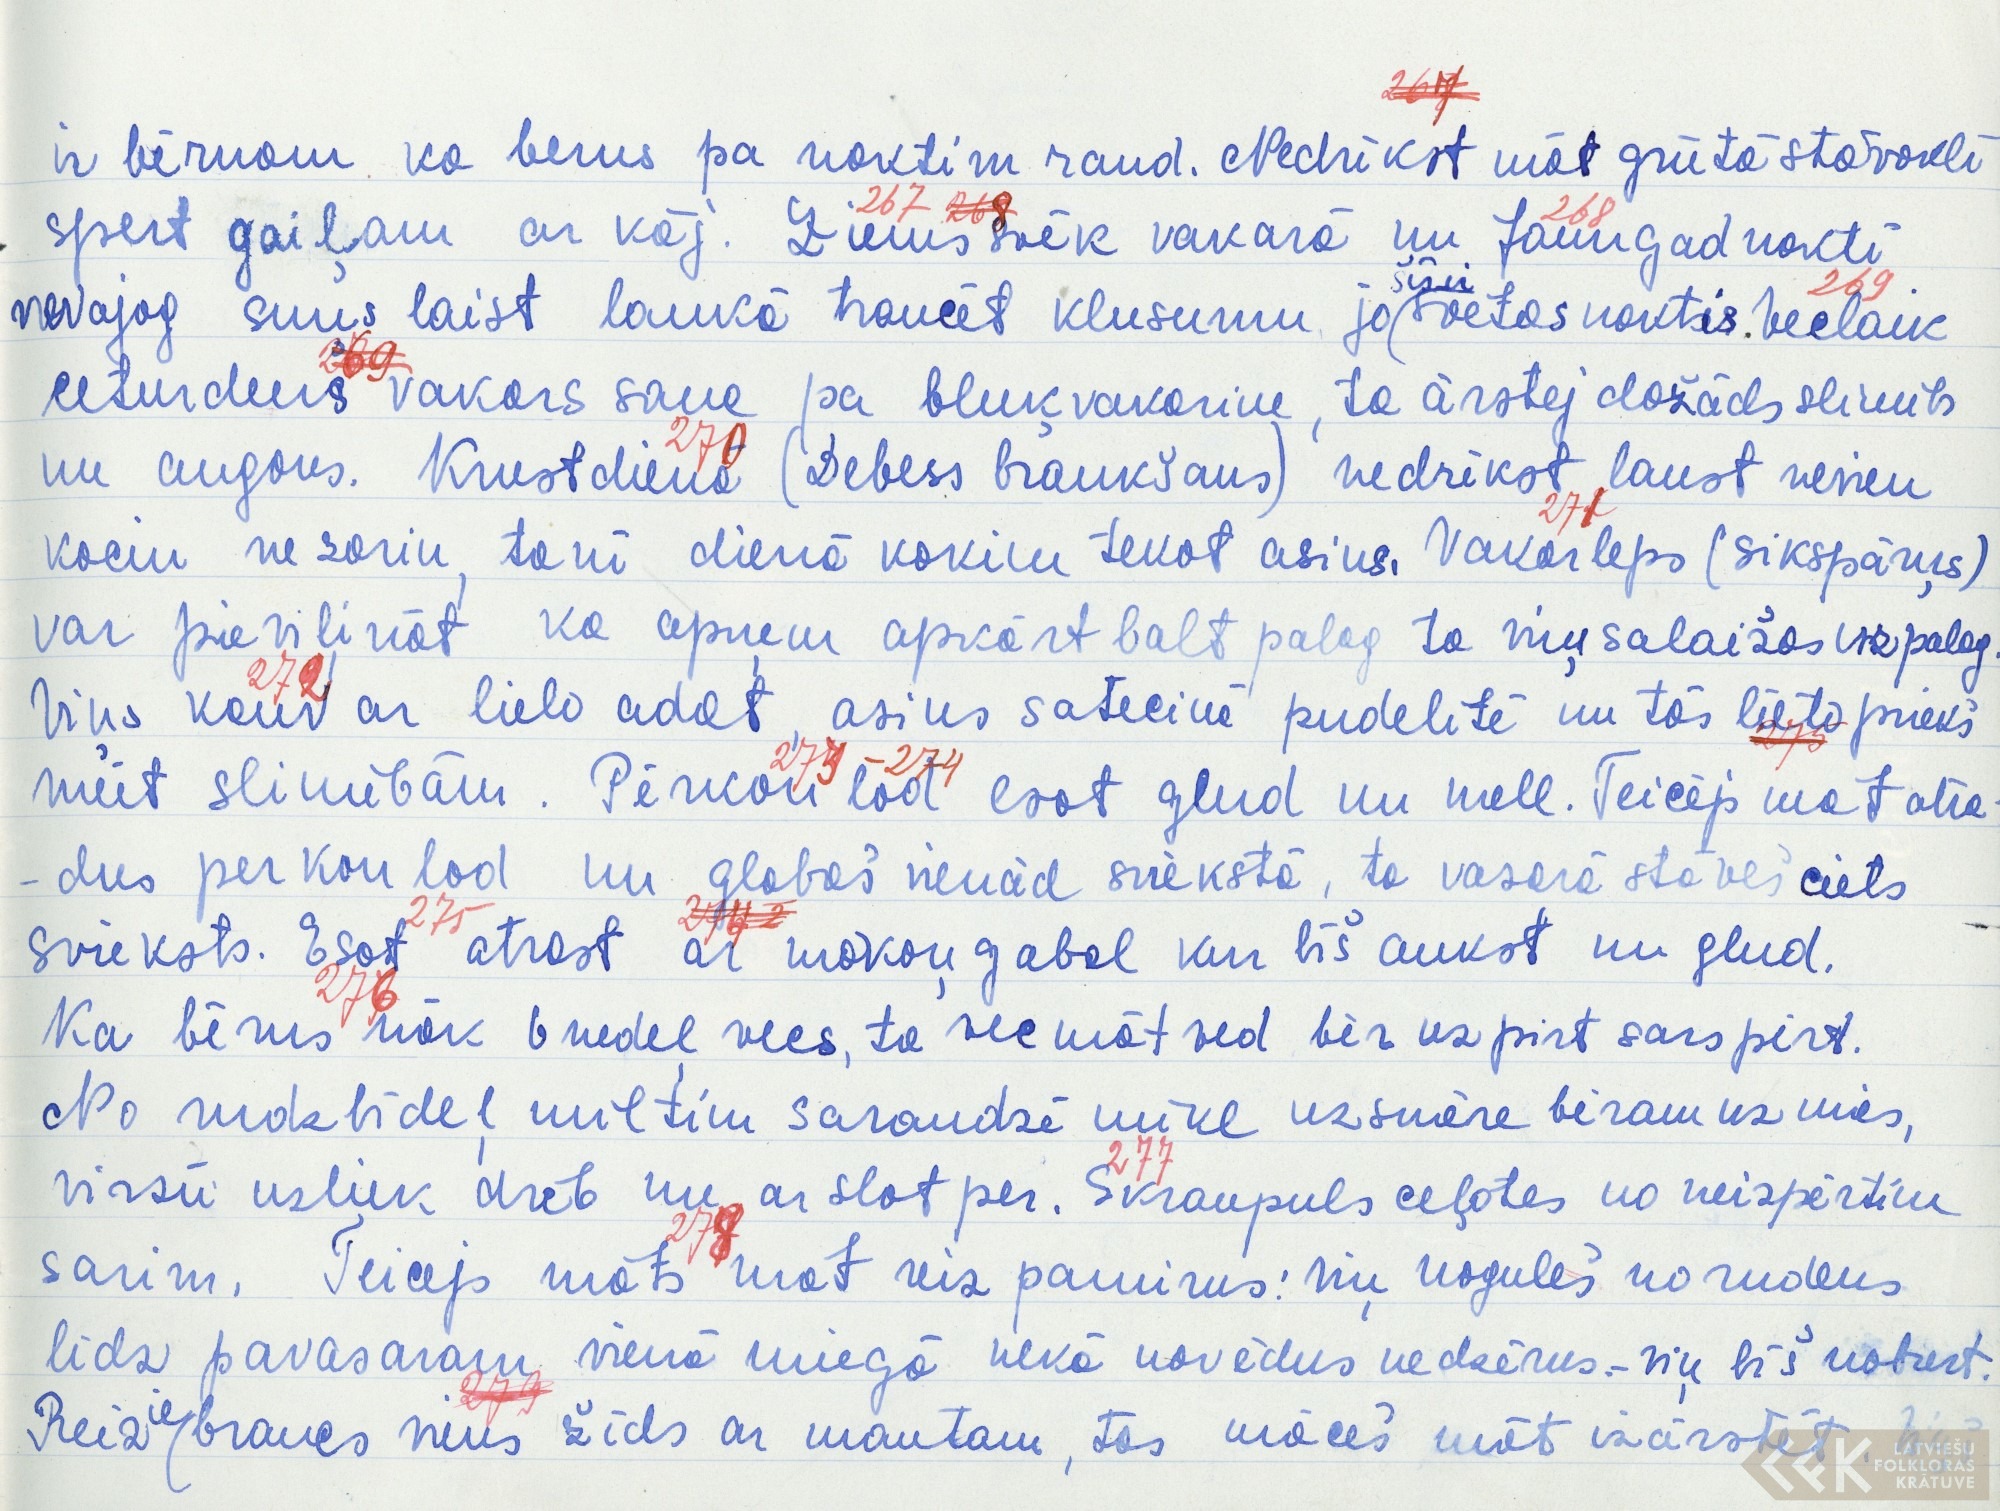 267
ir bērnam ka berns pa naktim raud. Nedrīkst māt grūtā stāvoklī
267 268 268
spert gaiļam ar kāj. Ziemssvēk vakarā un Jaungad naktī
šīm 269
nevajag suņs laist laukā traucēt klusumu jo svētas naktis. Veclaik
269
ceturdens vakars sauc pa bluķvakarim, ta ārstēj dažāds slimīb
270
un augons. Krustdienā (Debess braukšans) nedrīkst laust nevien
271
kociņ ne zariņ, tanī dienā kokim tekot asins. Vakarleps (sikspārņs)
var pieviļināt ka apņem apkārt balt palag ta viņ salaižas uz palag.
272
Viņs kauv ar lielo adat, asins satecinē pudelītē un tās lieto prieks
275
mēit slimībām. Pērkoņ lod esot glud un mell. Teicēj mat atra-
273-274
-dus perkon lod un glabaš vienād sviekstā, ta vasarā stāvēš ciets
svieksts. Esot atrast ar mākoņ gabal kur bīš aukst un glud.
275 274 2
276
Ka bērns nāk 6 nedeļ vecs, ta vecmāt ved bēr uz pirt sars pērt.
No rudzbīdeļ miltim saraudzē mīkl uzsmēre bēram uz mies,
277
virsū uzliek drēb un ar slot per. Skraupuls ceļotes no neizpērtim
278
sarim. Teicējs māts mat reiz pamirus: viņ nogulēš no rudens
līdz pavasaram vienā miegā nekā novēdus nedzērus. - viņ bīš noburt.
279
Reiz ie braucs viens žīds ar mantam, tas mācēš māt izārstēt.
LATVIEŠU
FOLKLORAS
KRĀTUVE